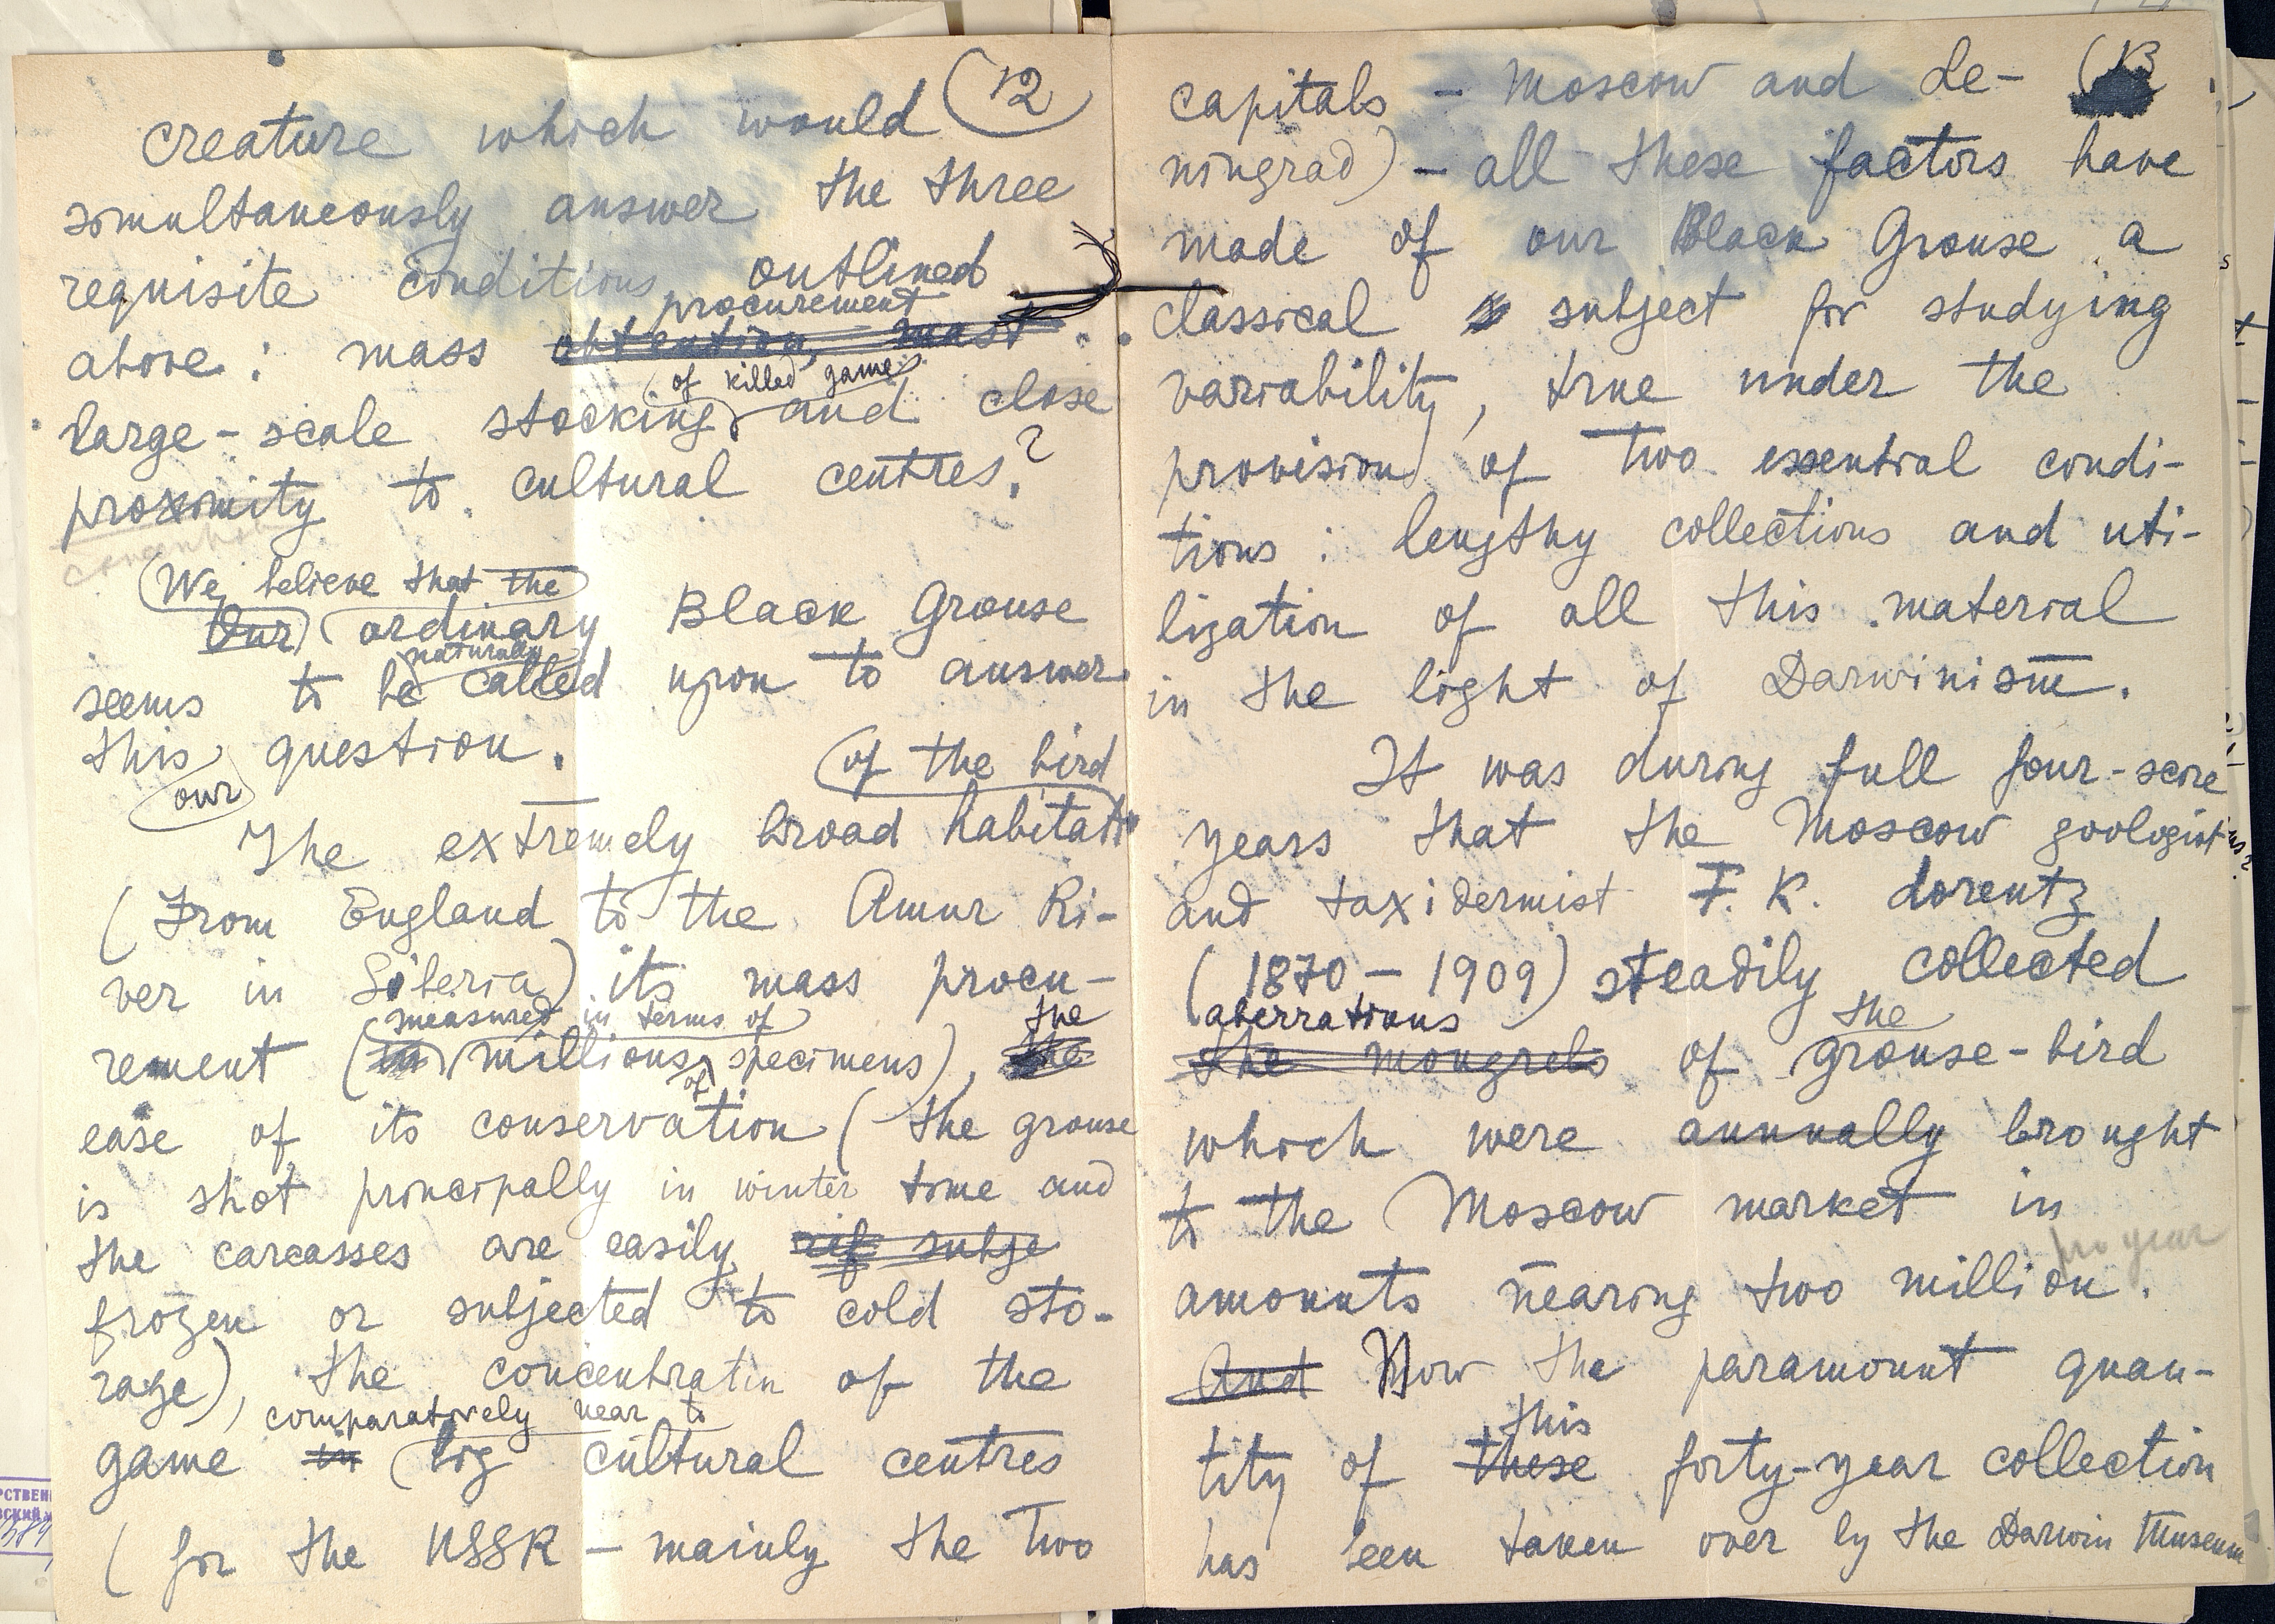 (12
creature which would
simultaneously answer the three
requisite conditions outlined
procurement
above : mass obtention, mast
(of killed game)
large-scale stocking, and close
proximity to cultural centres?
We believe that the
Our ordinary Black Grouse
naturally
seems to be called upon to answer
this question.
our
of the bird
The extremely broad habitat
(From England to the Amur Ri-
ver in Siberia) its mass procu-
measured in terms of the
rement (in millions of specimens), the
ease of its conservation (the grouse
is shot principally in winter time and
the carcasses are easily rif subje
frozen or subjected to cold sto-
rage), the concentratin of the
comparatively near to
game in big cultural centres
(for the USSR - mainly the two
(13
capitals - Moscow and Le-
ningrad) - all these factors have
made of our Black Grouse a
classical subject for studying
variability, true under the
provision of two essential condi-
tions : lengthy collections and uti-
lization of all this material
in the light of Darwinism.
It was during full four-score
years that the Moscow zoologist
and taxidermist F. K. Lorentz
(1870 - 1909) steadily collected
aberrations the
the mongrels of grouse-bird
which were annually brought
to the Moscow market in
pro year
amounts nearing two million.
And Now the paramount quan-
this
tity of these forty-year collection
has been taken over by the Darwin Museum